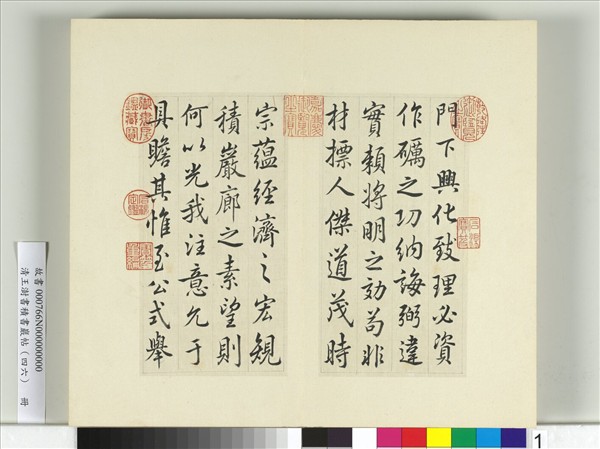 門下興化致理必資
作礪之功納誨弼違
實賴將明之効苟非
材摽人傑道茂時
宗蘊經濟之宏規
積巖廊之素望則
何以光我注意允于
具瞻其惟至公式舉
御書房鑑藏寶
故書000766N00000000
清王澍書積書巖帖（四六） 冊
1